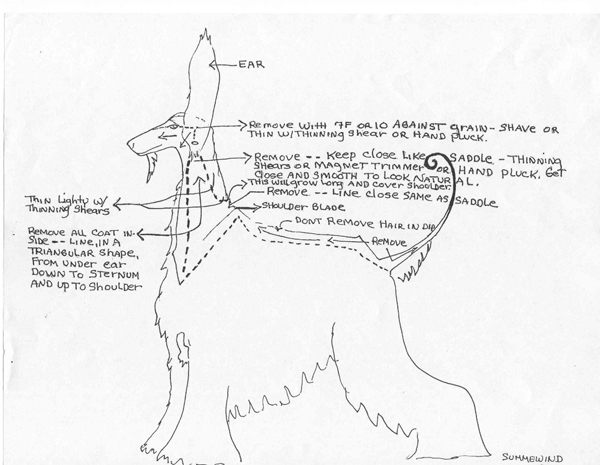 EAR
Remove with 7F or 10 AGAINST grain - SHAVE OR
THIN W/THINNING Shear OR HAND PLUCK.
Remove -- Keep close Like SADDLE - THINNING
Shears or MAGNET Trimmer OR HAND PLUCK. Get
Close AND SMOOTH TO LOOK NATURAL.
This will grow Long AND COVER Shoulder.
Remove -- Line close SAME AS SADDLE
SHOULDER BLADE
DONT Remove HAIR IN DIP
Remove
Thin Lightly w/
Thinning Shears
Remove ALL COAT IN-
SIDE -- LINE, IN A
TRIANGULAR SHAPE,
FROM UNDER ear
DOWN TO STERNUM
AND UP TO SHOULDER
SUMMEWIND